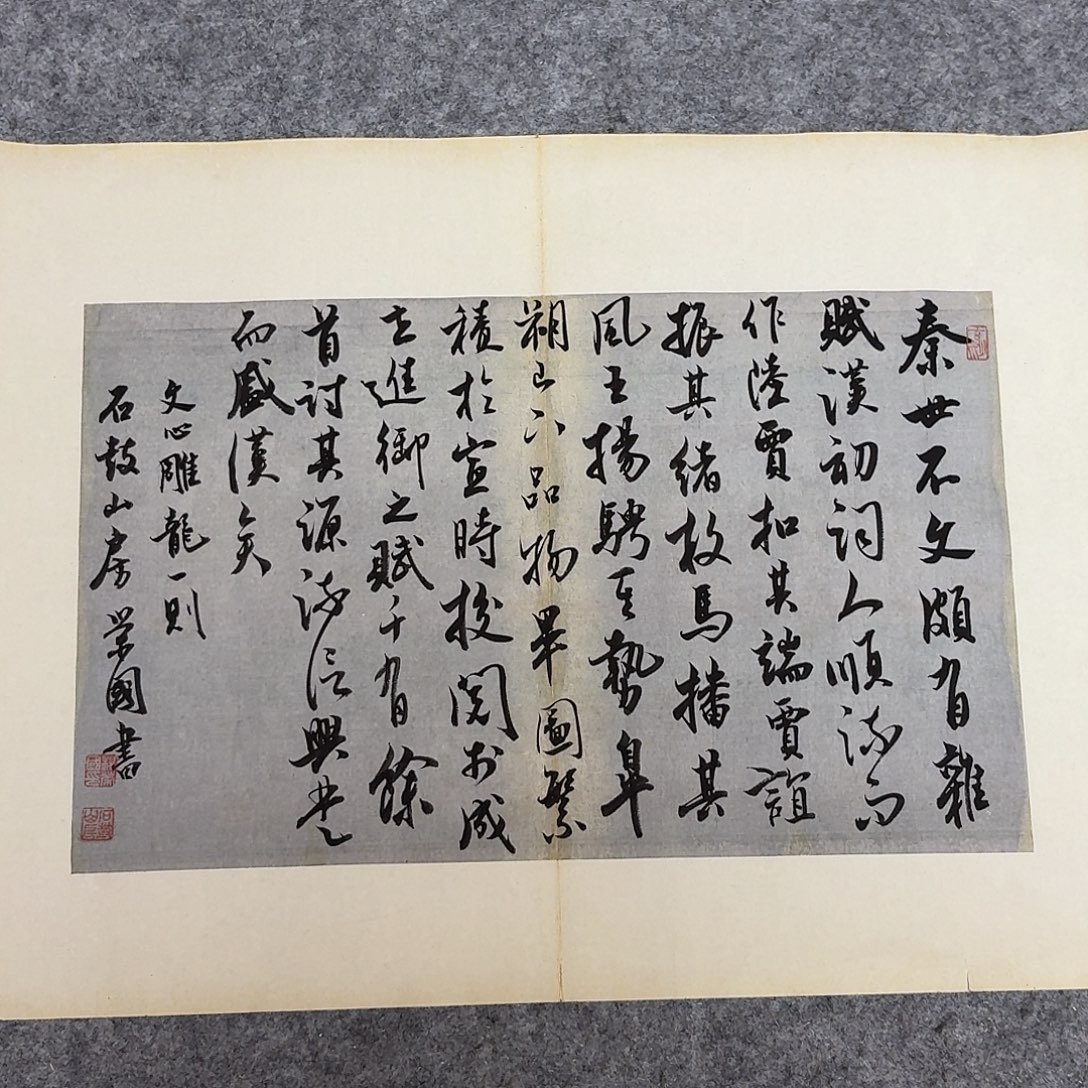 秦世不文頗有雜
賦漢初詞人順流而
作陸賈扣其端賈誼
振其緒枚馬播其
風王揚騁其勢皐
朔已下品物畢圖繁
積於宣時校閱於成
世進御之賦千有餘
首討其源流信興楚
而盛漢矣
文心雕龍一則
石鼓山房榮國書